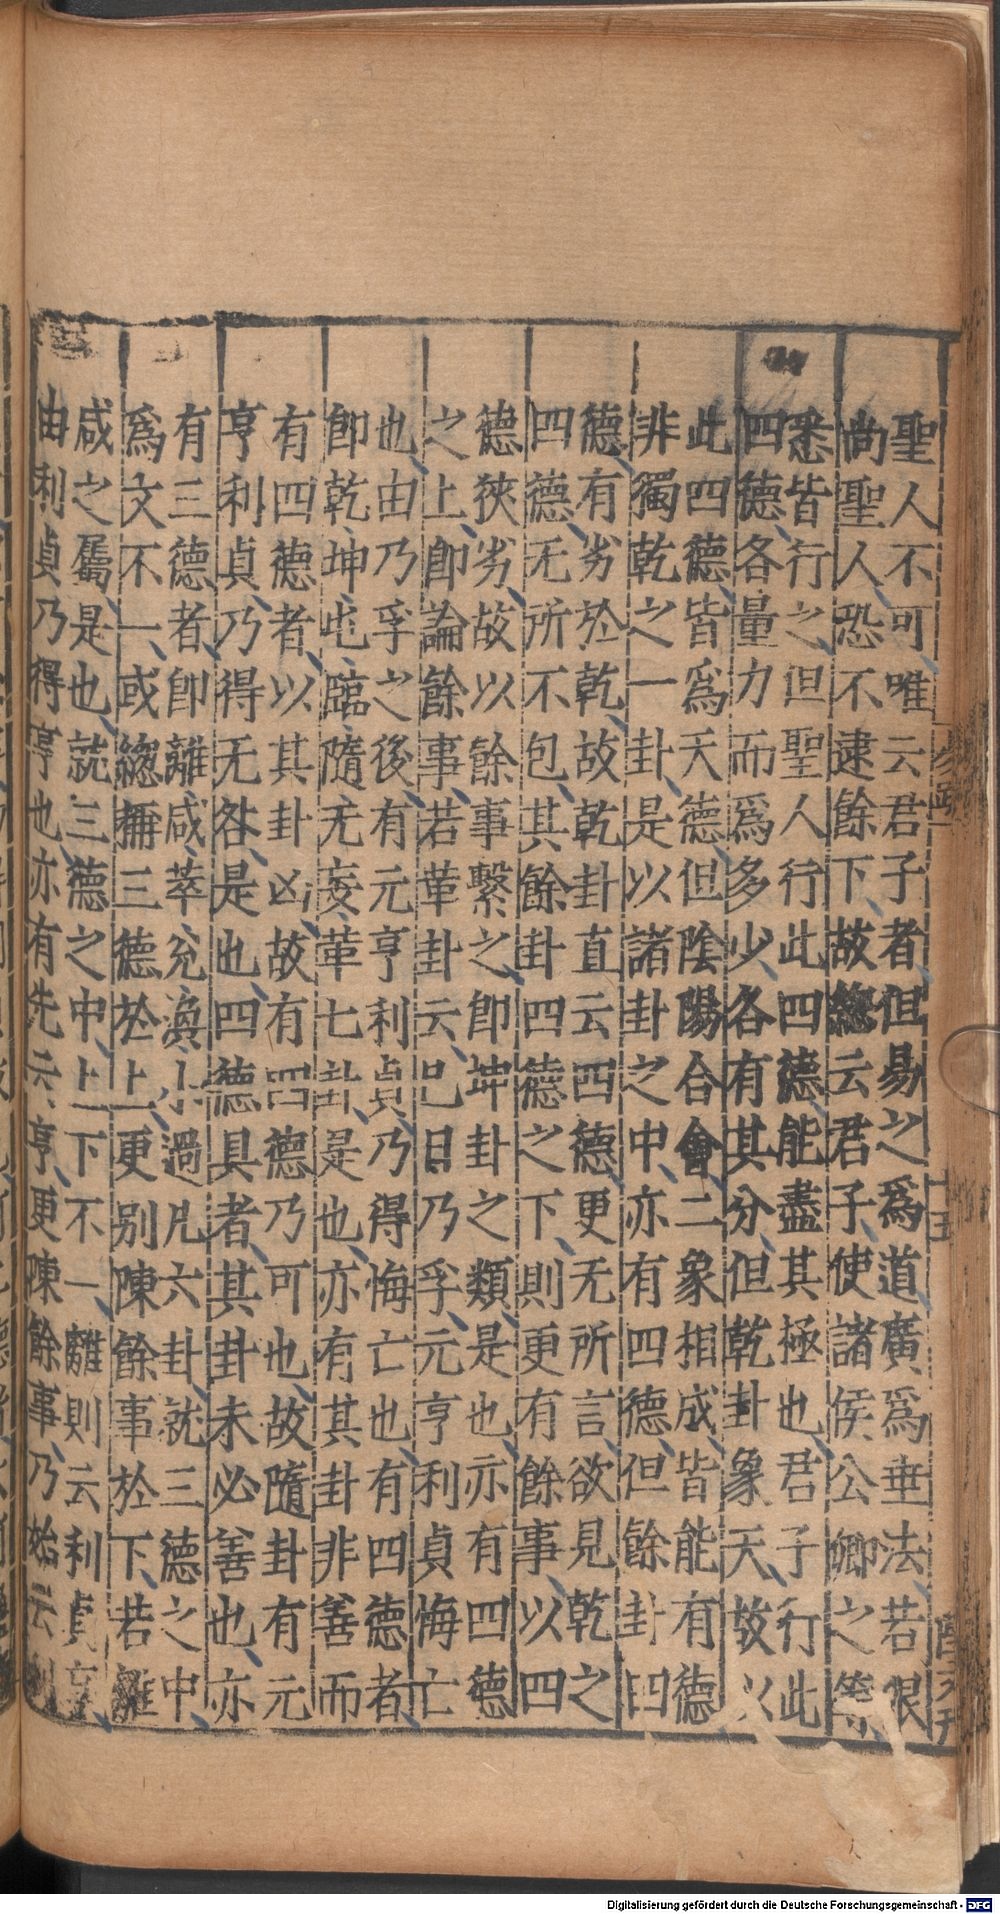 聖人不可唯云君子者但易之爲道廣爲垂法若限
尚聖人恐不逮餘下故緫云君子使諸侯公卿之等
悉皆行之但聖人行此四德能盡其極也君子行此
四德各量力而爲多少各有其分但乾卦象天故以
此四德皆爲天德但陰陽合會二象相成皆能有德
非獨乾之一卦是以諸卦之中亦有四德但餘卦四
德有劣扵乾故乾卦直云四德更无所言欲見乾之
四德无所不包其餘卦四德之下則更有餘事以四
德狹劣故以餘事繫之即坤卦之類是也亦有四德
之上即論餘事若革卦云巳日乃孚元亨利貞悔亡
也由乃孚之後有元亨利貞乃得悔亡也有四德者
即乾坤屯臨隨无妄革七卦是也亦有其卦非善而
有四德者以其卦凶故有四德乃可也故隨卦有元
亨利貞乃得无咎是也四德具者其卦未必善也亦
有三德者即離咸萃兊渙小過凡六卦就三德之中
爲文不一或緫稱三德扵上更别陳餘事扵下若離
咸之屬是也就三德之中上下不一離則云利貞亨
由利貞乃得亨也亦有先云亨更陳餘事乃始云利
Digitalisierung gefördert durch die Deutsche Forschungsgemeinschaft - DFG